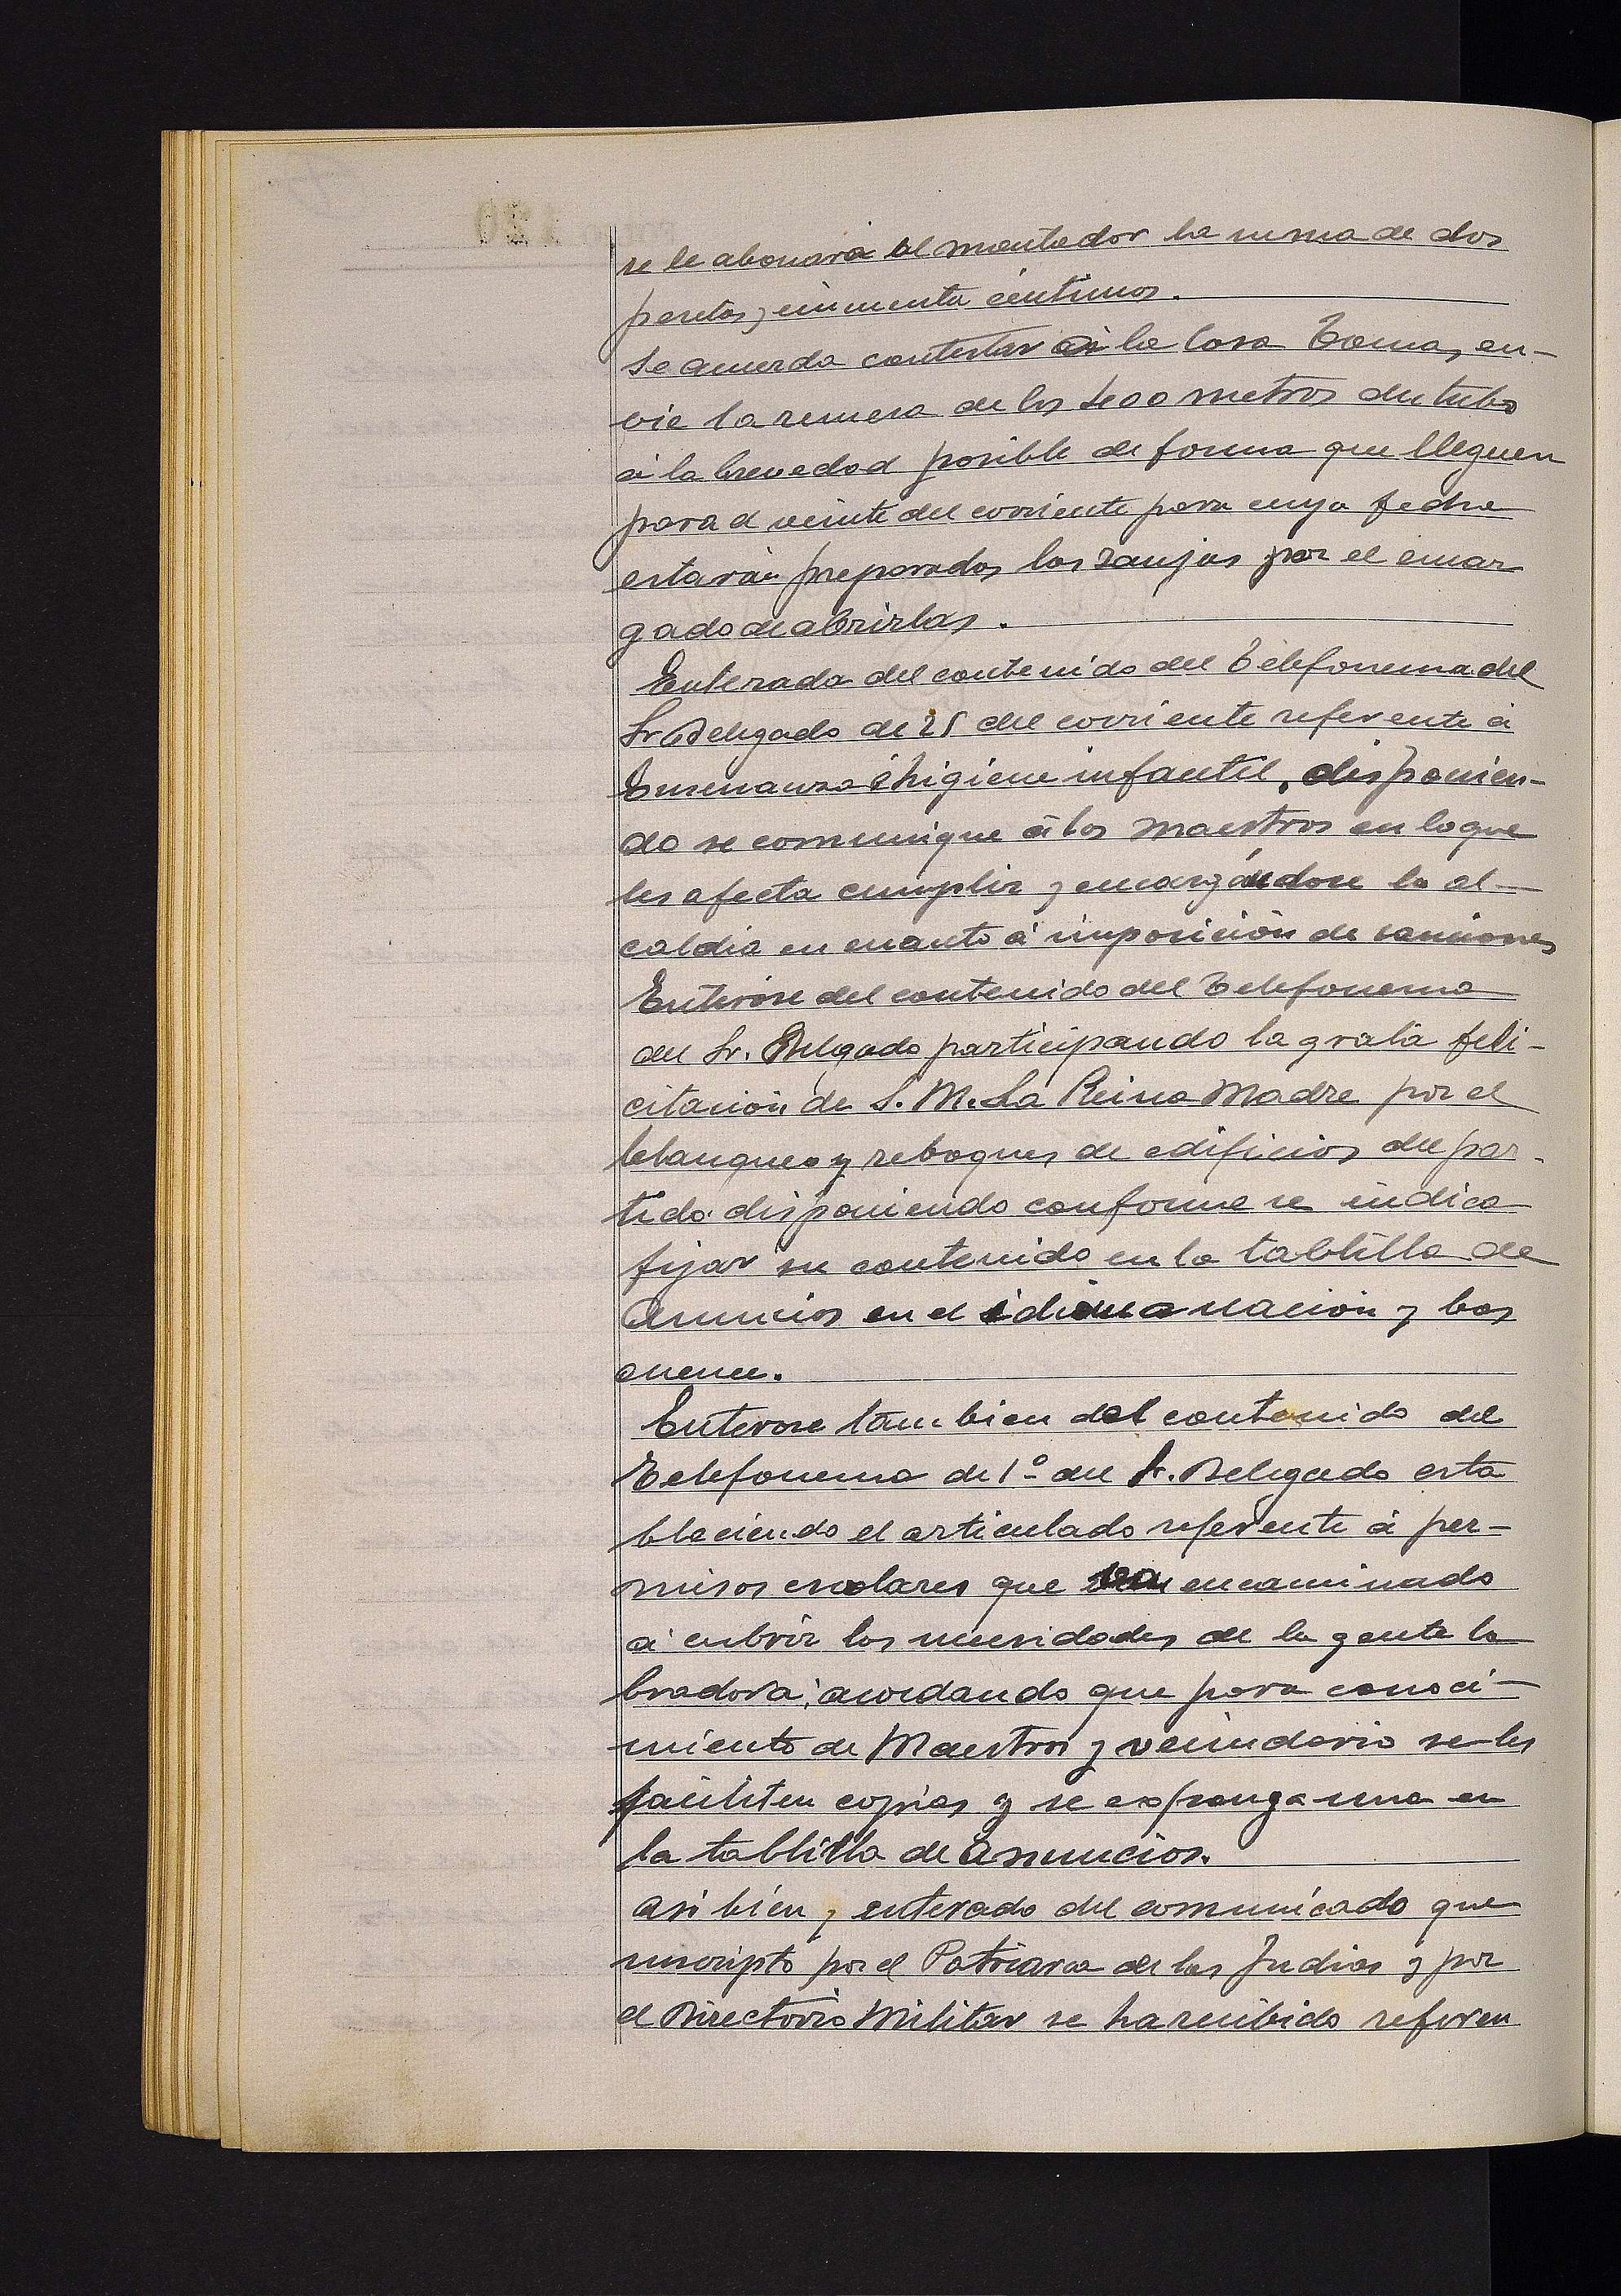 se le abonará al montador la suma de dos
pesetas y cincuenta céntimos.
Se acuerda contestar á la Casa Toma, en-
vie la remesa de los 400 metros de tubo
á la brevedad posible de forma que lleguen
para el veinte del corriente para cuya fecha
estarán preparados las zanjas por el encar
gado de abrirlas.
Enterada del contenido del Telefonema del
Sr Delegado de 25 del corriente referente á
Ensenanza é higiene infantil, disponien-
do se comunique á los maestros en lo que
les afecta cumplir y encargándose la al-
caldia en cuanto á imposición de sanciones
Enteróse del contenido del Telefonema
del Sr. Delgado participando la grata feli-
citación de S. M. La Reina Madre por el
blanqueo y reboques de edificios del par-
tido disponiendo conforme se indica
fijar su contenido en la tablilla de
Anuncios en el idioma nación y bas
cuence.
Enterose tambien del contenido del
Telefonema de 1º del Sr. Delegado esta
bleciendo el articulado referente á per-
misos escolares que encaminado
á cubrir las necesidades de la gente la
bradora; acordando que para conoci-
miento de Maestros y vecindario se les
faciliten copias y se exponga una en
la tablilla de anuncios.
asi bien y enterado del comunicado que
suscripto por el Patriarca de las Indias y por
el Directorio Militar se ha recibido referen